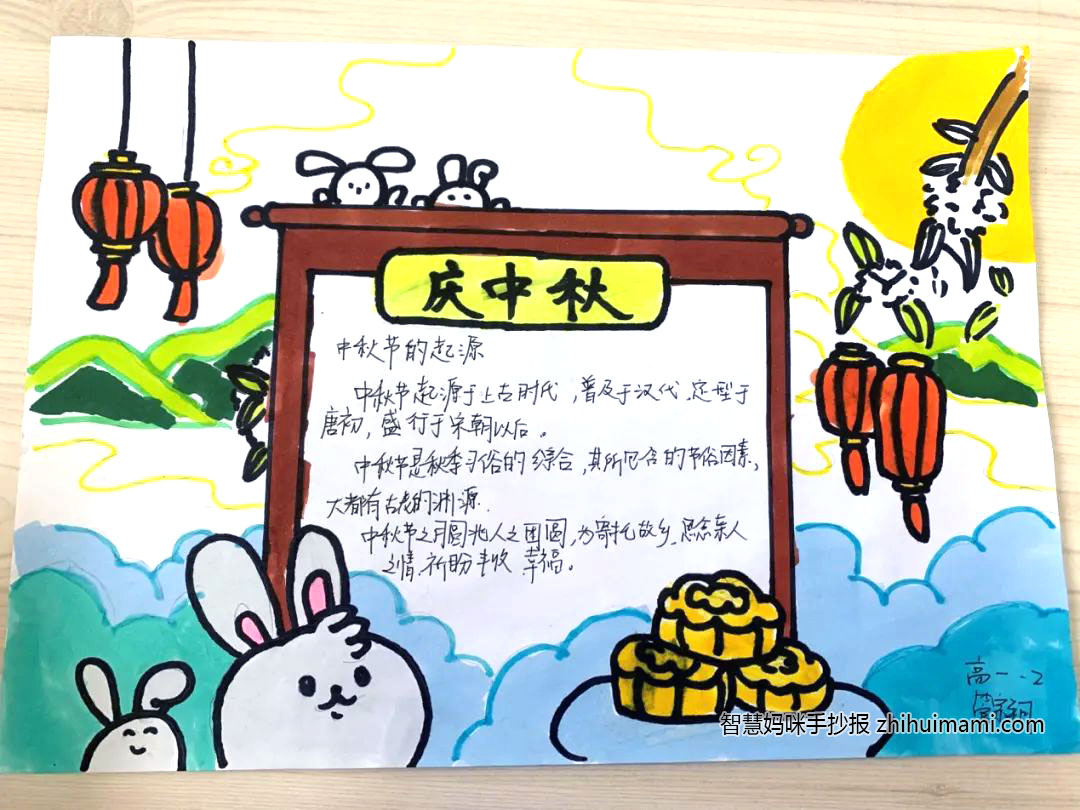 庆中秋
中秋节的起源
中秋节起源于上古时代,普及于汉代.定型于
唐初,盛行于宋朝以后。
中秋节是秋季习俗的综合,其所包含的节俗因素,
大都有古老的渊源.
中秋节之月圆兆人之团圆,为寄托故乡.思念亲人
之情.祈盼丰收 幸福。
高一.2
智慧妈咪手抄报 zhihuimami.com